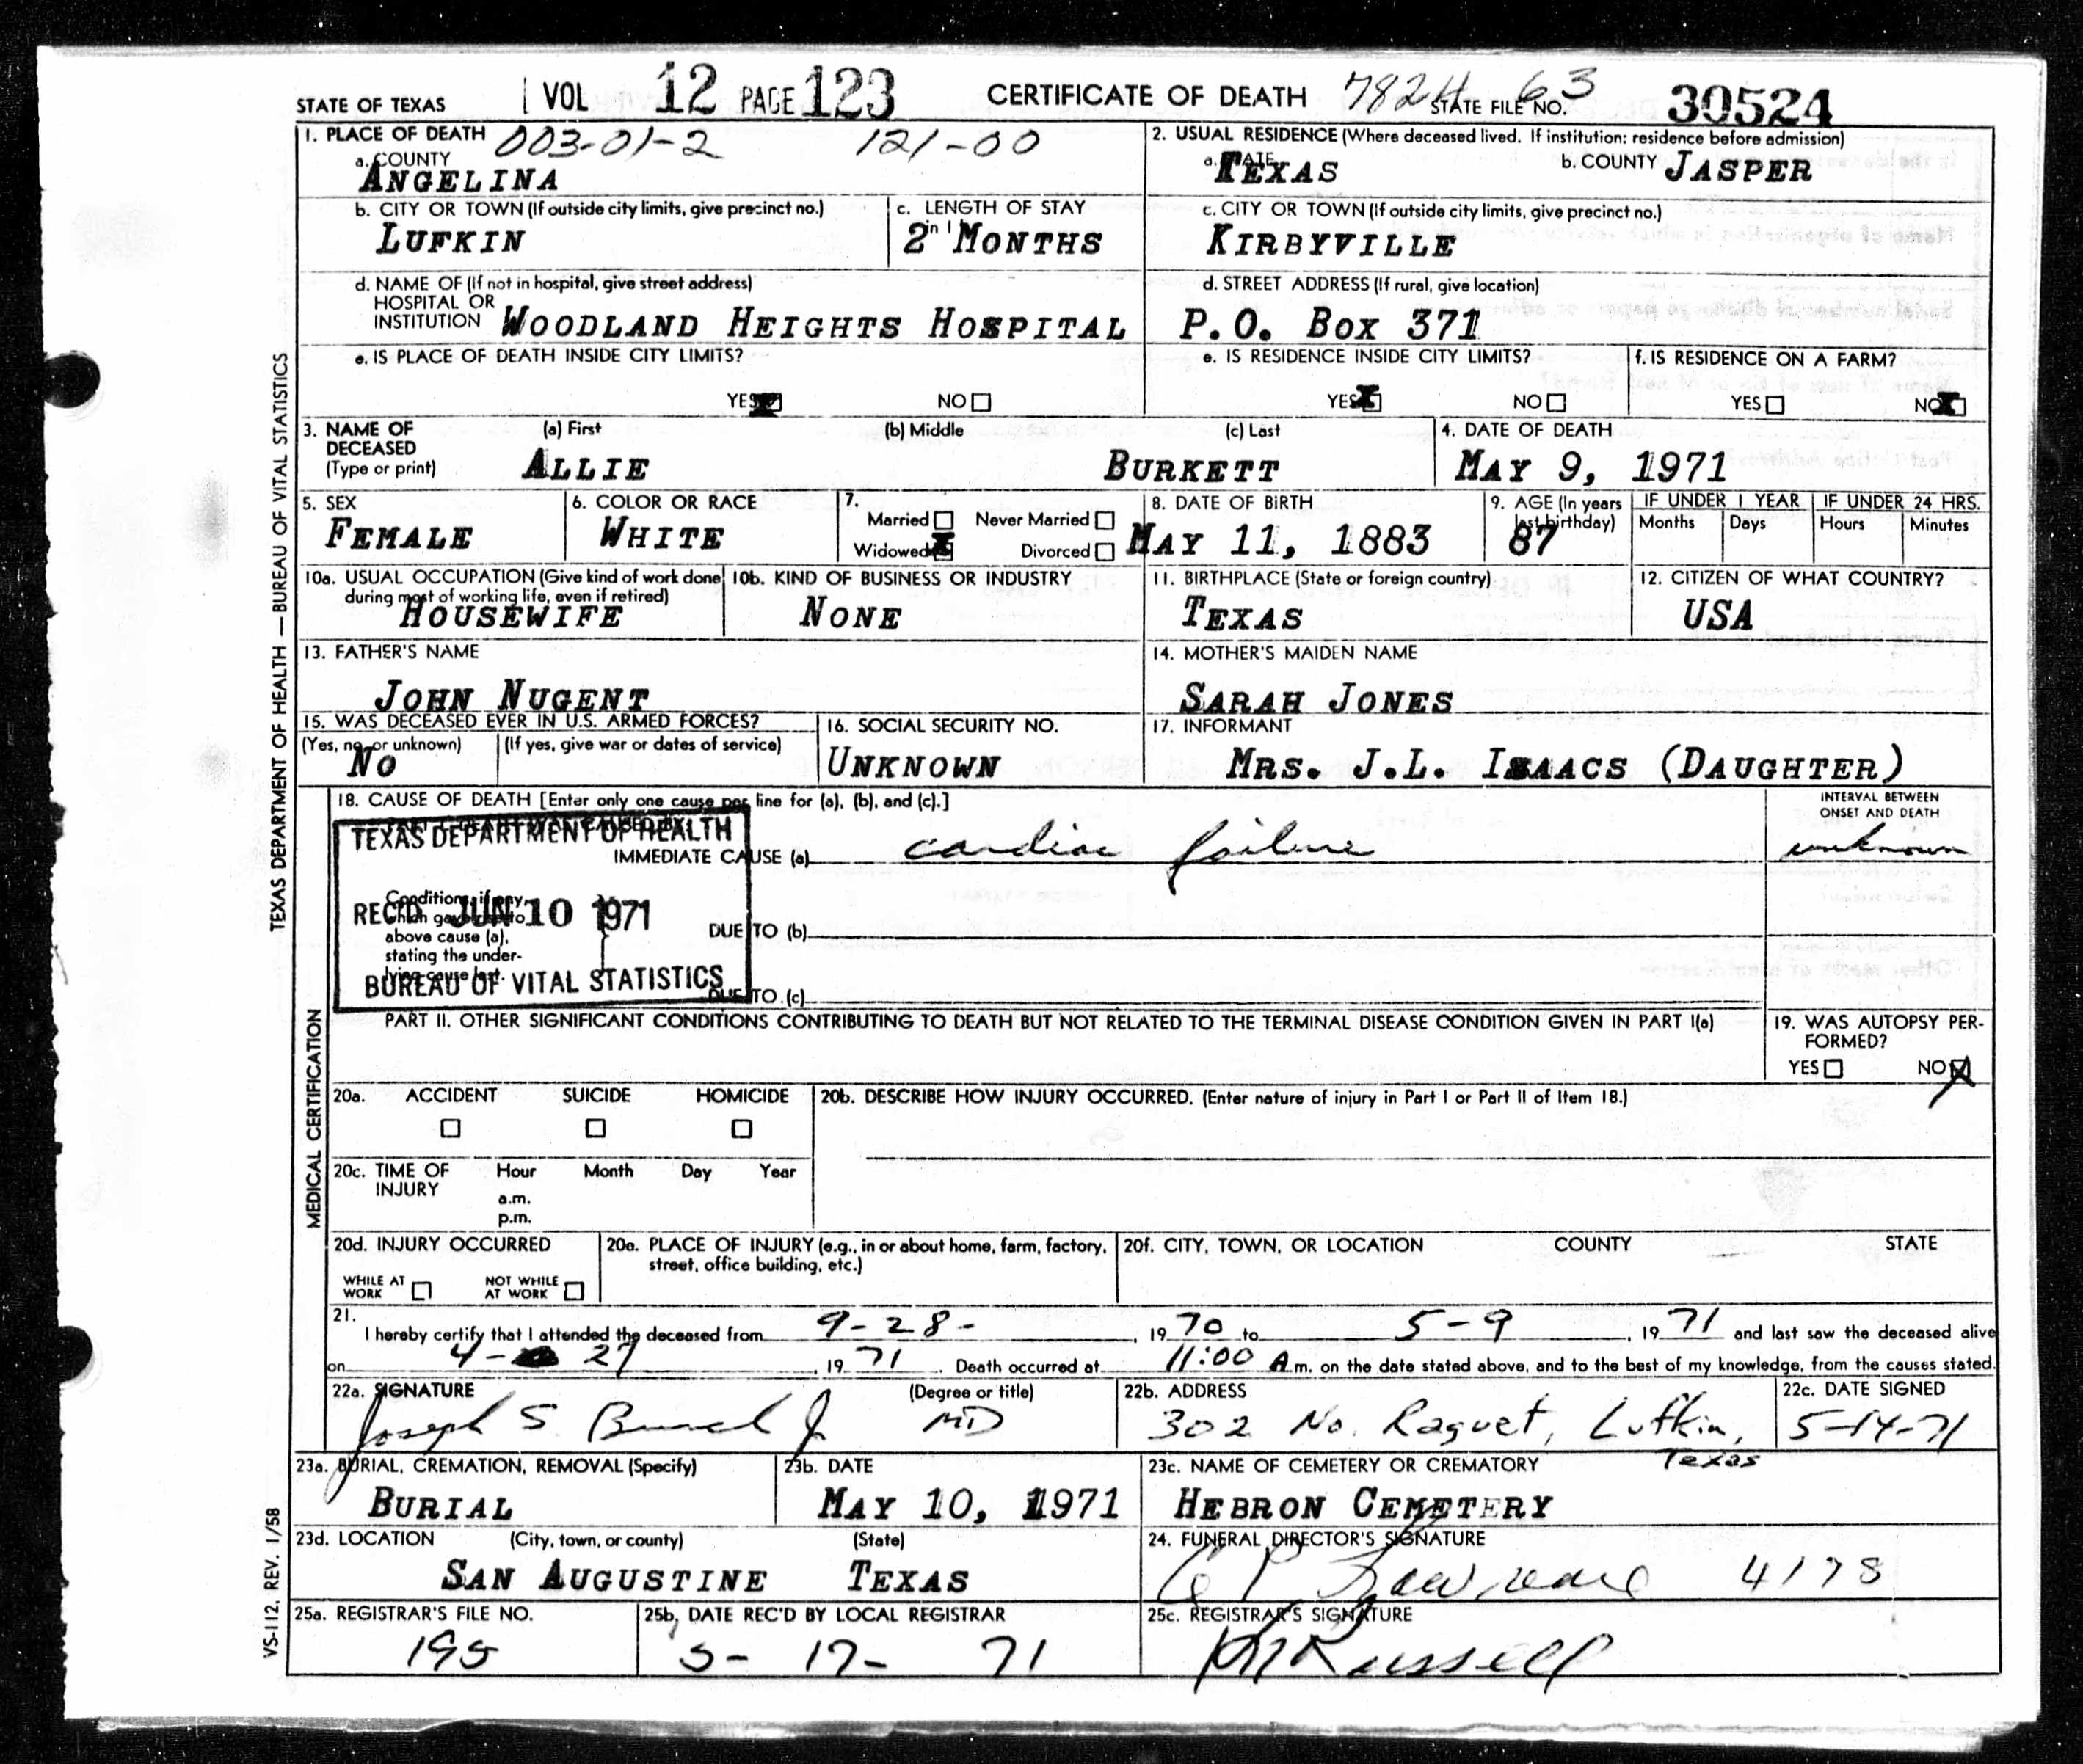 STATE OF TEXAS VOL 12 PAGE 123 CERTIFICATE OF DEATH 7824 63 STATE FILE NO. 30524
1. PLACE OF DEATH 003-01-2 121-00
a. COUNTY
ANGELINA
2. USUAL RESIDENCE (Where deceased lived. If institution: residence before admission)
a. STATE TEXAS b. COUNTY JASPER
b. CITY OR TOWN (If outside city limits, give precinct no.)
LUFKIN
c. LENGTH OF STAY
2 MONTHS
c. CITY OR TOWN (If outside city limits, give precinct no.)
KIRBYVILLE
d. NAME OF (If not in hospital, give street address)
HOSPITAL OR
INSTITUTION WOODLAND HEIGHTS HOSPITAL
d. STREET ADDRESS (If rural, give location)
P.O. BOX 371
e. IS PLACE OF DEATH INSIDE CITY LIMITS?
YES NO
e. IS RESIDENCE INSIDE CITY LIMITS?
YES NO
f. IS RESIDENCE ON A FARM?
YES NO
3. NAME OF DECEASED
(Type or print)
(a) First (b) Middle (c) Last
ALLIE BURKETT
4. DATE OF DEATH
MAY 9, 1971
5. SEX
FEMALE
6. COLOR OR RACE
WHITE
7.
Married Never Married
Widowed Divorced
8. DATE OF BIRTH
MAY 11, 1883
9. AGE (In years
last birthday)
87
IF UNDER 1 YEAR IF UNDER 24 HRS.
Months Days Hours Minutes
10a. USUAL OCCUPATION (Give kind of work done
during most of working life, even if retired)
HOUSEWIFE
10b. KIND OF BUSINESS OR INDUSTRY
NONE
11. BIRTHPLACE (State or foreign country)
TEXAS
12. CITIZEN OF WHAT COUNTRY?
USA
13. FATHER'S NAME
JOHN NUGENT
14. MOTHER'S MAIDEN NAME
SARAH JONES
15. WAS DECEASED EVER IN U.S. ARMED FORCES?
(Yes, no, or unknown) (If yes, give war or dates of service)
NO
16. SOCIAL SECURITY NO.
UNKNOWN
17. INFORMANT
MRS. J.L. ISAACS (DAUGHTER)
18. CAUSE OF DEATH [Enter only one cause per line for (a), (b), and (c).]
INTERVAL BETWEEN
ONSET AND DEATH
TEXAS DEPARTMENT OF HEALTH
IMMEDIATE CAUSE (a) cardiac failure unknown
REC'D JUN 10 1971
Conditions, if any,
which gave rise to
above cause (a),
stating the under-
lying cause last.
DUE TO (b)
BUREAU OF VITAL STATISTICS
DUE TO (c)
PART II. OTHER SIGNIFICANT CONDITIONS CONTRIBUTING TO DEATH BUT NOT RELATED TO THE TERMINAL DISEASE CONDITION GIVEN IN PART I(a)
19. WAS AUTOPSY PER-
FORMED?
YES NO
20a. ACCIDENT SUICIDE HOMICIDE
20b. DESCRIBE HOW INJURY OCCURRED. (Enter nature of injury in Part I or Part II of Item 18.)
20c. TIME OF INJURY Hour Month Day Year
a.m.
p.m.
20d. INJURY OCCURRED
WHILE AT WORK NOT WHILE AT WORK
20e. PLACE OF INJURY (e.g., in or about home, farm, factory,
street, office building, etc.)
20f. CITY, TOWN, OR LOCATION COUNTY STATE
21.
I hereby certify that I attended the deceased from 9-28- , 19 70 to 5-9 , 19 71 and last saw the deceased alive
on 4- 27 , 19 71 . Death occurred at 11:00 A m. on the date stated above, and to the best of my knowledge, from the causes stated.
22a. SIGNATURE (Degree or title)
Joseph S. Jr MD
22b. ADDRESS
302 No. Raguet, Lufkin,
Texas
22c. DATE SIGNED
5-14-71
23a. BURIAL, CREMATION, REMOVAL (Specify)
BURIAL
23b. DATE
MAY 10, 1971
23c. NAME OF CEMETERY OR CREMATORY
HEBRON CEMETERY
23d. LOCATION (City, town, or county) (State)
SAN AUGUSTINE TEXAS
24. FUNERAL DIRECTOR'S SIGNATURE
4178
25a. REGISTRAR'S FILE NO.
195
25b. DATE REC'D BY LOCAL REGISTRAR
5- 17- 71
25c. REGISTRAR'S SIGNATURE
Russell
TEXAS DEPARTMENT OF HEALTH — BUREAU OF VITAL STATISTICS
MEDICAL CERTIFICATION
VS-112, REV. 1/58